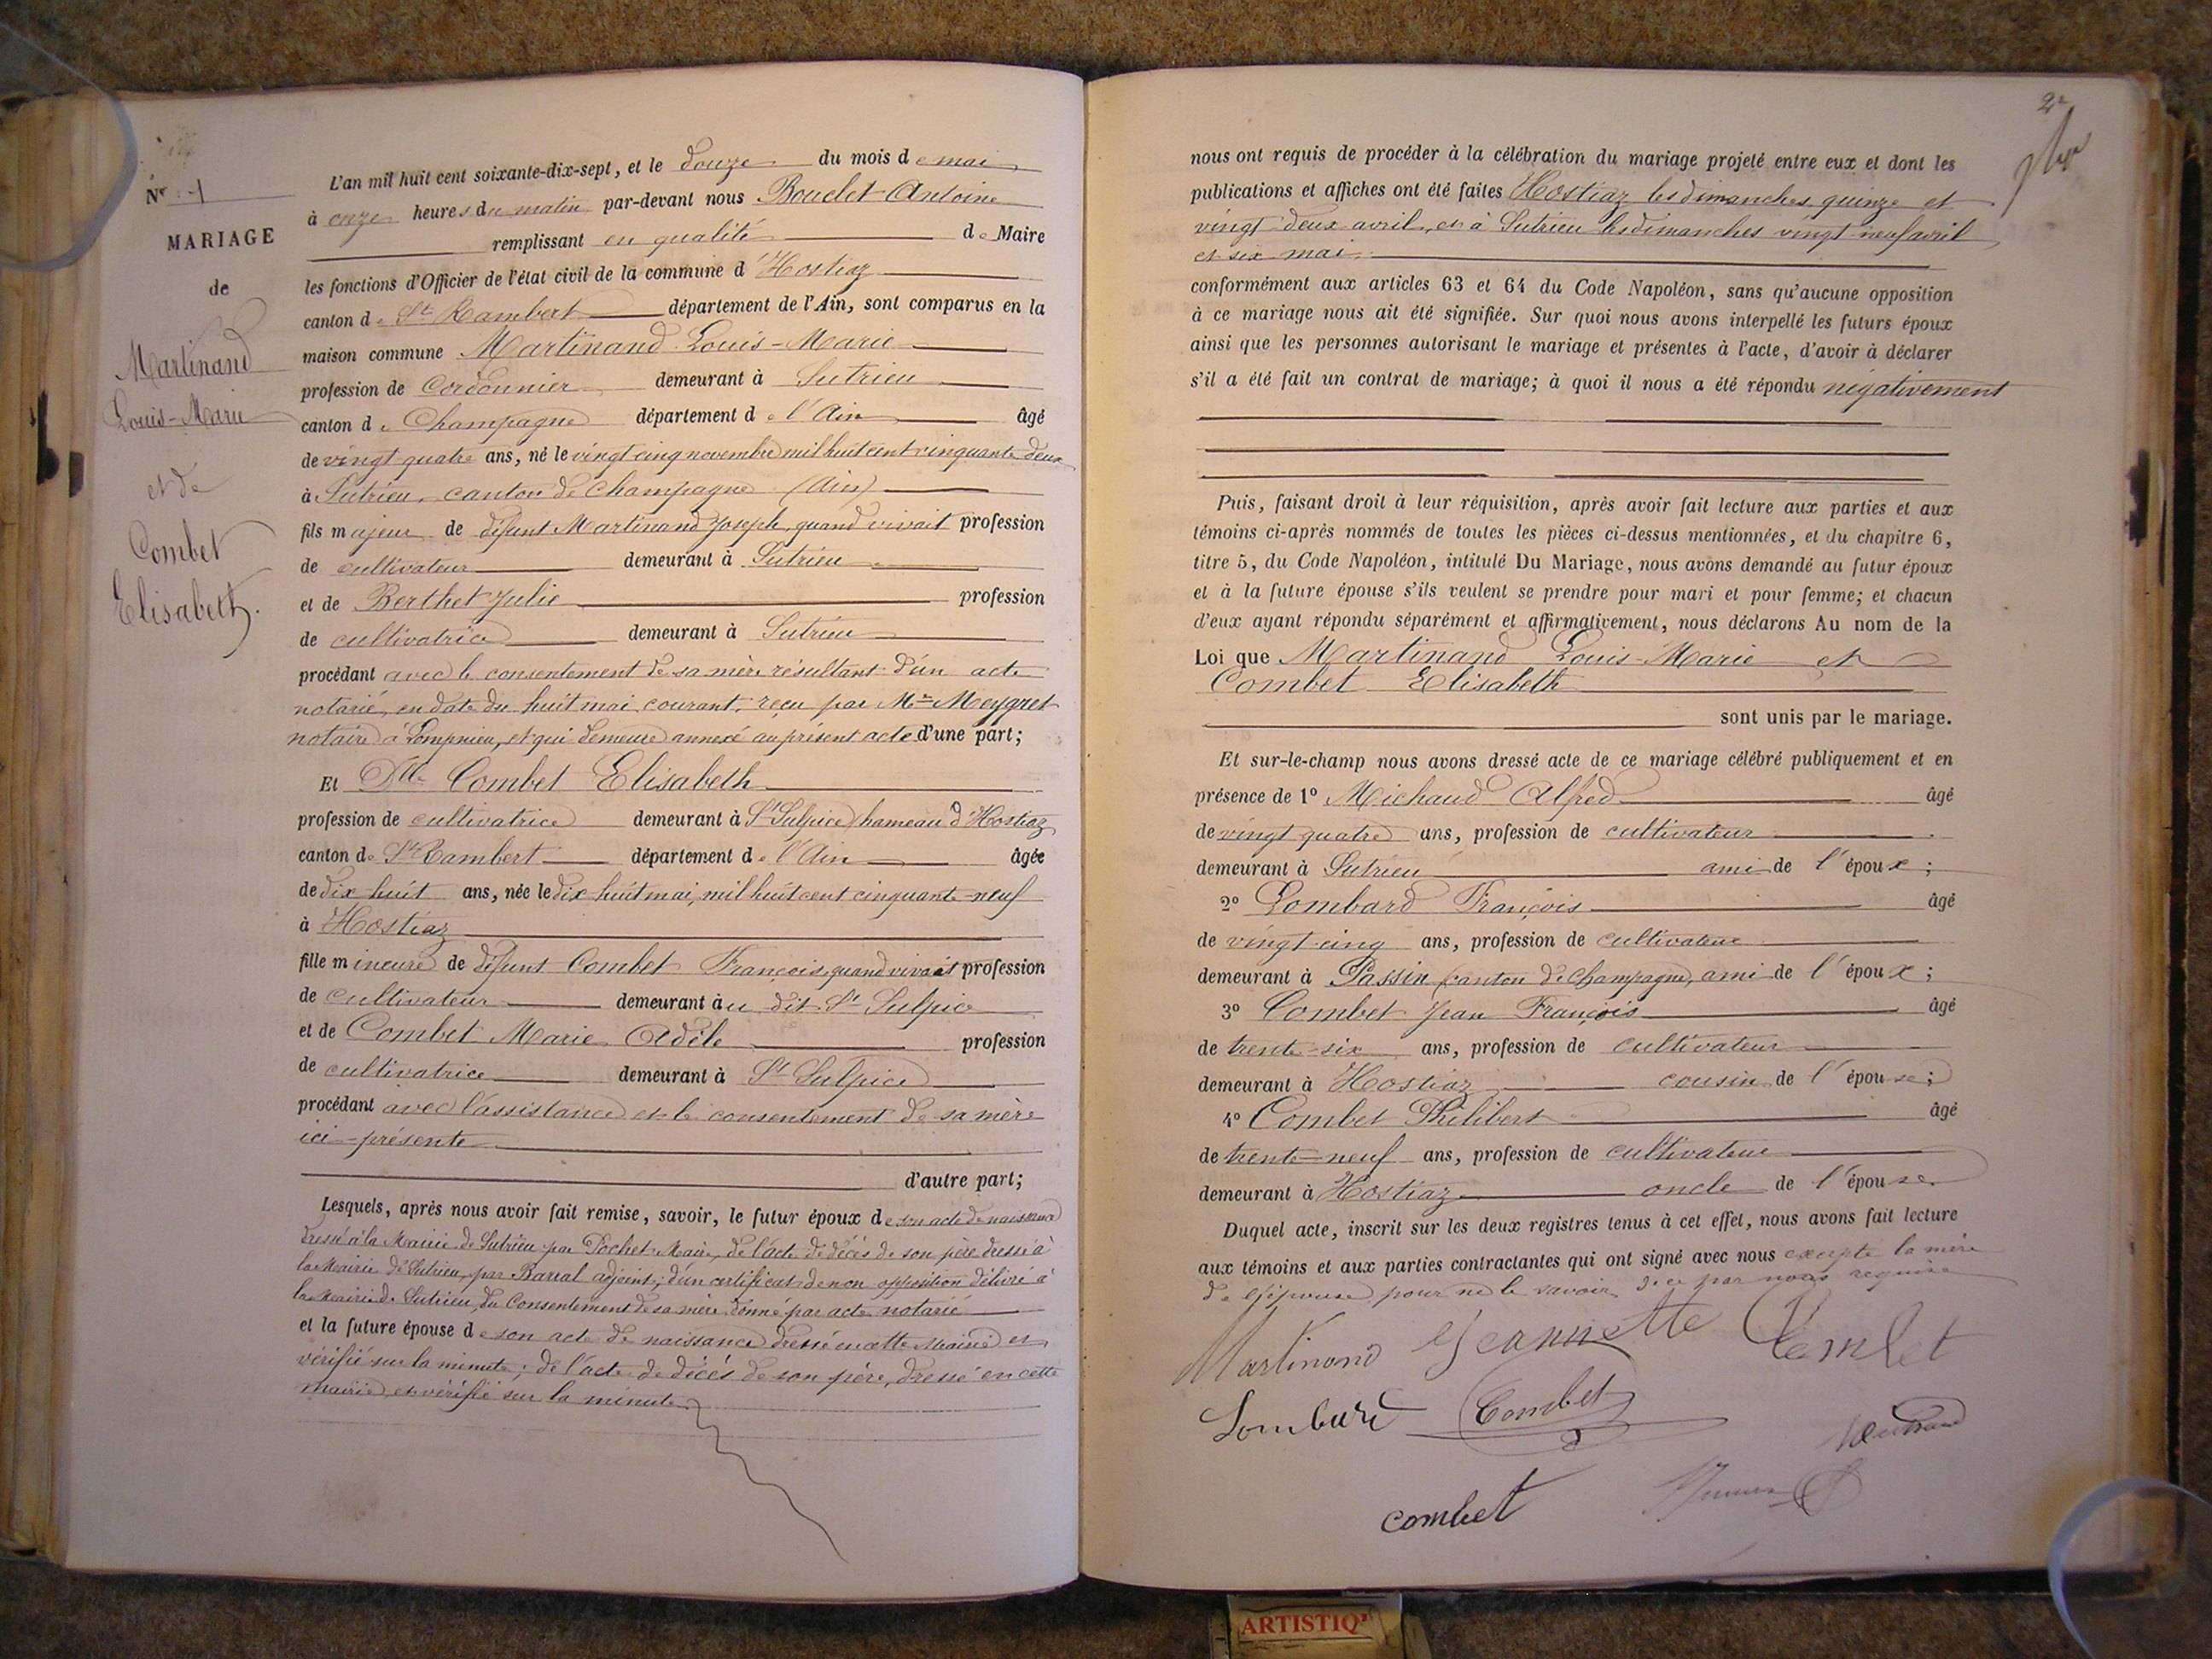 Nº 1
MARIAGE
de
Martinand
Louis-Marie
et de
Combet
Elisabeth.
L'an mil huit cent soixante-dix-sept, et le douze du mois de mai
à onze heures du matin par-devant nous Bouclet Antoine
remplissant en qualité de Maire
les fonctions d'Officier de l'état civil de la commune d'Hostiaz
canton de St Rambert département de l'Ain, sont comparus en la
maison commune Martinand Louis-Marie
profession de Cordonnier demeurant à Sutrieu
canton de Champagne département de l'Ain âgé
de vingt quatre ans, né le vingt cinq novembre mil huit cent cinquante deux
à Sutrieu, canton de Champagne (Ain)
fils majeur de défunt Martinand Joseph, quand vivait profession
de cultivateur demeurant à Sutrieu
et de Berthet Julie profession
de cultivatrice demeurant à Sutrieu
procédant avec le consentement de sa mère résultant d'un acte
notarié, en date du huit mai courant, reçu par Me Meygret
notaire à Lompnieu, et qui demeure annexé au présent acte d'une part;
Et Dlle Combet Elisabeth
profession de cultivatrice demeurant à St Sulpice hameau d'Hostiaz
canton de St Rambert département de l'Ain âgée
de dix huit ans, née le dix huit mai, mil huit cent cinquante-neuf
à Hostiaz
fille mineure de défunt Combet François, quand vivait profession
de cultivateur demeurant au dit St Sulpice
et de Combet Marie Adèle profession
de cultivatrice demeurant à St Sulpice
procédant avec l'assistance et le consentement de sa mère
ici-présente
d'autre part;
Lesquels, après nous avoir fait remise, savoir, le futur époux de son acte de naissance
dressé à la Mairie de Sutrieu par Pochet Maire, de l'acte de décès de son père dressé à
la Mairie de Sutrieu, par Barral adjoint; d'un certificat de non opposition délivré à
la Mairie de Sutrieu, du Consentement de sa mère donné par acte notarié
et la future épouse de son acte de naissance dressé en cette Mairie et
vérifié sur la minute; de l'acte de décès de son père, dressé en cette
mairie, et vérifié sur la minute
2e
nous ont requis de procéder à la célébration du mariage projeté entre eux et dont les
publications et affiches ont été faites Hostiaz les dimanches quinze et
vingt deux avril, et à Sutrieu les dimanches vingt-neuf avril
et six mai
conformément aux articles 63 et 64 du Code Napoléon, sans qu'aucune opposition
à ce mariage nous ait été signifiée. Sur quoi nous avons interpellé les futurs époux
ainsi que les personnes autorisant le mariage et présentes à l'acte, d'avoir à déclarer
s'il a été fait un contrat de mariage; à quoi il nous a été répondu négativement
Puis, faisant droit à leur réquisition, après avoir fait lecture aux parties et aux
témoins ci-après nommés de toutes les pièces ci-dessus mentionnées, et du chapitre 6,
titre 5, du Code Napoléon, intitulé Du Mariage, nous avons demandé au futur époux
et à la future épouse s'ils veulent se prendre pour mari et pour femme; et chacun
d'eux ayant répondu séparément et affirmativement, nous déclarons Au nom de la
Loi que Martinand Louis-Marie et
Combet Elisabeth
sont unis par le mariage.
Et sur-le-champ nous avons dressé acte de ce mariage célébré publiquement et en
présence de 1º Michaud Alfred âgé
de vingt quatre ans, profession de cultivateur
demeurant à Sutrieu ami de l'époux;
2º Lombard François âgé
de vingt-cinq ans, profession de cultivateur
demeurant à Passin canton de Champagne, ami de l'époux;
3º Combet Jean François âgé
de trente-six ans, profession de cultivateur
demeurant à Hostiaz cousin de l'épouse;
4º Combet Philibert âgé
de trente-neuf ans, profession de cultivateur
demeurant à Hostiaz oncle de l'épouse
Duquel acte, inscrit sur les deux registres tenus à cet effet, nous avons fait lecture
aux témoins et aux parties contractantes qui ont signé avec nous excepté la mère
de l'épouse pour ne le savoir de ce par nous requise
Martinand Jeannette Combet
Lombard Combet
combet
ARTISTIQ